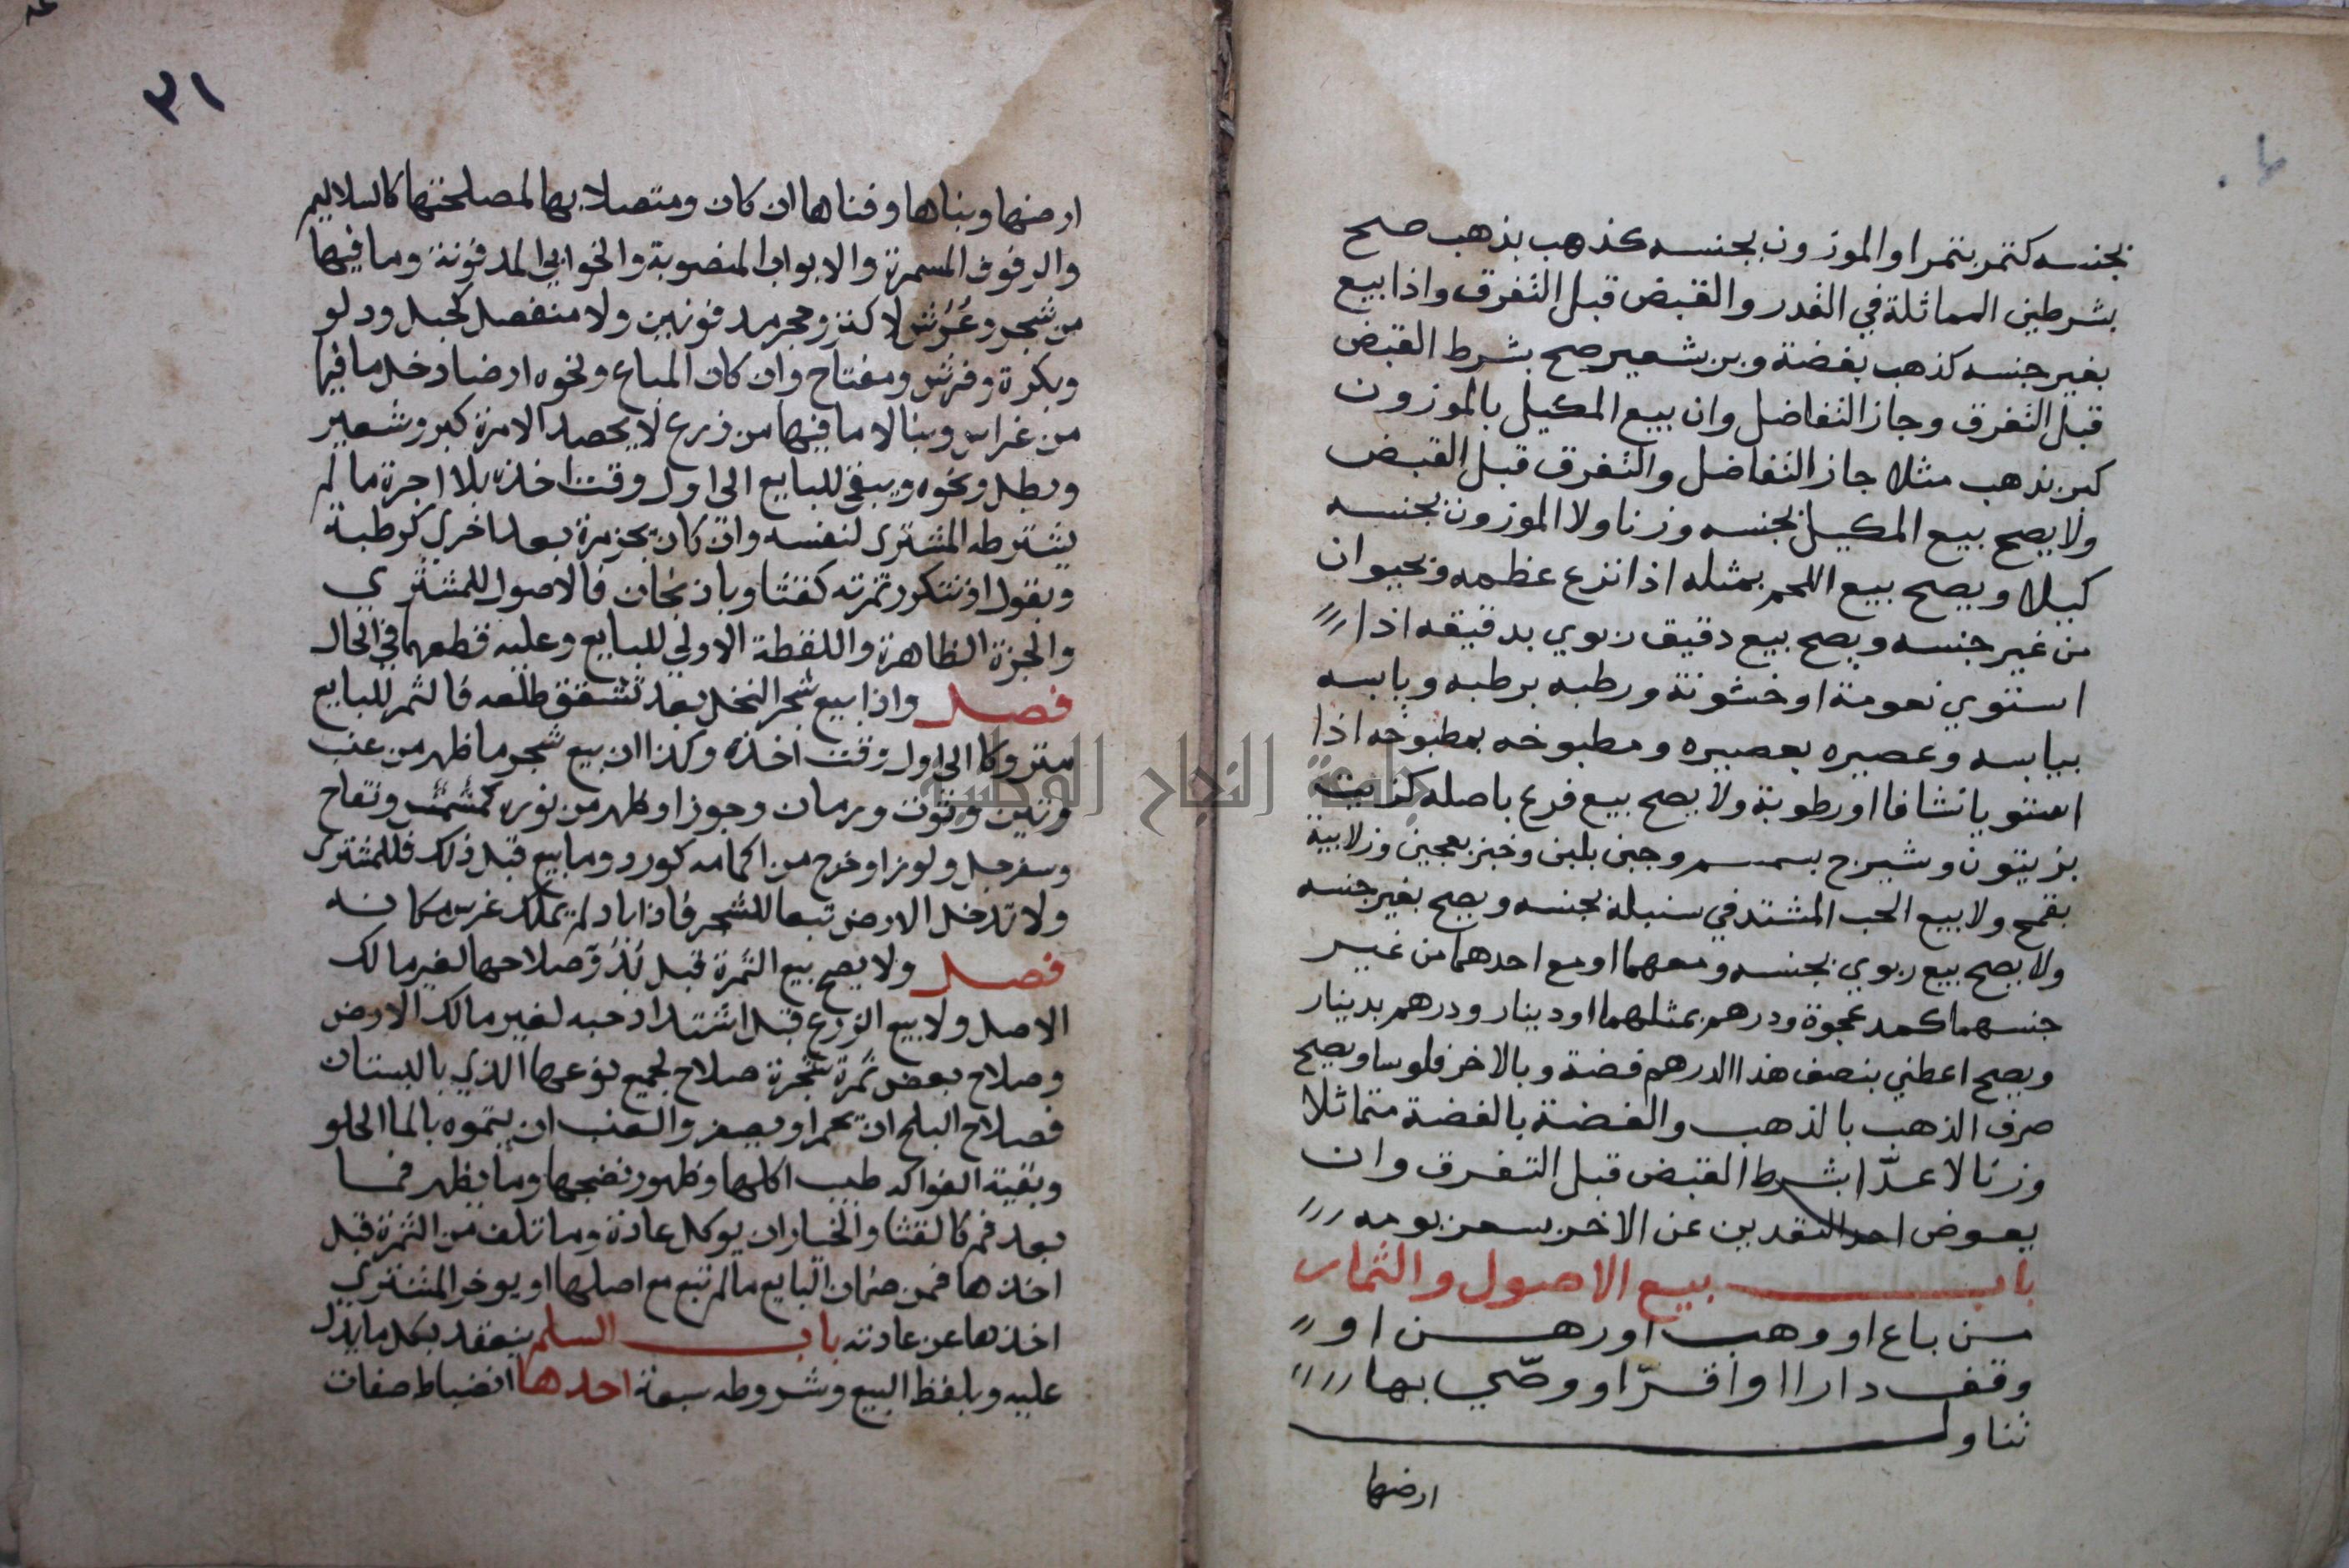 بجنسه كتمر بتمر او الموزون بجنسه كذهب بذهب صح
بشرطين المماثلة في القدر والقبض قبل التفرق واذا بيع
بغير جنسه كذهب بفضة وبر بشعير صح بشرط القبض
قبل التفرق وجاز التفاضل وان بيع المكيل بالموزون
كبر بذهب مثلا جاز التفاضل والتفرق قبل القبض
ولا يصح بيع المكيل بجنسه وزنا ولا الموزون بجنسه
كيلا ويصح بيع اللحم بمثله اذا نزع عظمه وبحيوان
من غير جنسه ويصح بيع دقيق ربوي بدقيقه اذا
استوي نعومة او خشونة ورطبه برطبه ويابسه
بيابسه وعصيره بعصيره ومطبوخه بمطبوخه اذا
استويا نشافا او رطوبة ولا يصح بيع فرع باصله كزيت
بزيتون وشيرج بسمسم وجبن بلبن وخبز بعجين وزلابية
بقمح ولا بيع الحب المشتد في سنبله بجنسه ويصح بغير جنسه
ولا يصح بيع ربوي بجنسه ومعهما او مع احدهما من غير
جنسهما كمد عجوة ودرهم بمثلهما او دينار ودرهم بدينار
ويصح اعطني بنصف هذا الدرهم فضة وبالاخر فلوسا ويصح
صرف الذهب بالذهب والفضة بالفضة متماثلا
وزنا لا عدّا بشرط القبض قبل التفرق وان
يعوض احد النقدين عن الاخر بسعر يومه
باب بيع الاصول والثمار
من باع او وهب او رهن او
وقف دارا او اقرّ او وصّي بها
تناول
ارضها
٣١
ارضها وبناها وفناها ان كان ومتصلا بها لمصلحتها كالسلاليم
والرفوف المسمرة والابواب المنصوبة والخوابي المدفونة وما فيها
من شجر وعُرُش لا كنز وحجر مدفونين ولا منفصل كحبل ودلو
وبكرة وفرش ومفتاح وان كان المباع ونحوه ارضا دخل ما فيها
من غراس وبنا لا ما فيها من زرع لا يحصد الا مرة كبر وشعير
وبصل ونحوه ويبقي للبايع الي اول وقت اخذه بلا اجرة ما لم
يشترطه المشتري لنفسه وان كان يجز مرة بعد اخري كرطبة
وبقول او تتكرر ثمرته كقثا وباذنجان فالاصول للمشتري
والجزة الظاهرة واللقطة الاولي للبايع وعليه قطعهما في الحال
فصل واذا بيع شجر النخل بعد تشقق طلعه فالثمر للبايع
متروكا الي اول وقت اخذه وكذا ان بيع شجر ما ظهر من عنب
وتين وتوت ورمان وجوز او ظهر من نوره كمشمش وتفاح
وسفرجل ولوز او خرج من اكمامه كورد وما بيع قبل ذلك فللمشتري
ولا تدخل الارض تبعا للشجر فاذا باد لم يملك غرس مكانه
فصل ولا يصح بيع الثمرة قبل بُدُوّ صلاحها لغير مالك
الاصل ولا بيع الزرع قبل اشتداد حبه لغير مالك الارض
وصلاح بعض ثمرة شجرة صلاح لجميع نوعها الذي بالبستان
فصلاح البلح ان يحمر او يصفر والعنب ان يتموه بالما الحلو
وبقية الفواكه طيب اكلها وظهور نضجها وما يظهر فما
بعد فم كالقثا والخيار ان يوكل عادة وما تلف من الثمرة قبل
اخذها فمن ضمان البايع ما لم تبع مع اصلها او يوخر المشتري
اخذها عن عادته باب السلم ينعقد بكل ما يدل
عليه وبلفظ البيع وشروطه سبعة احدها انضباط صفات
جامعة النجاح الوطنية